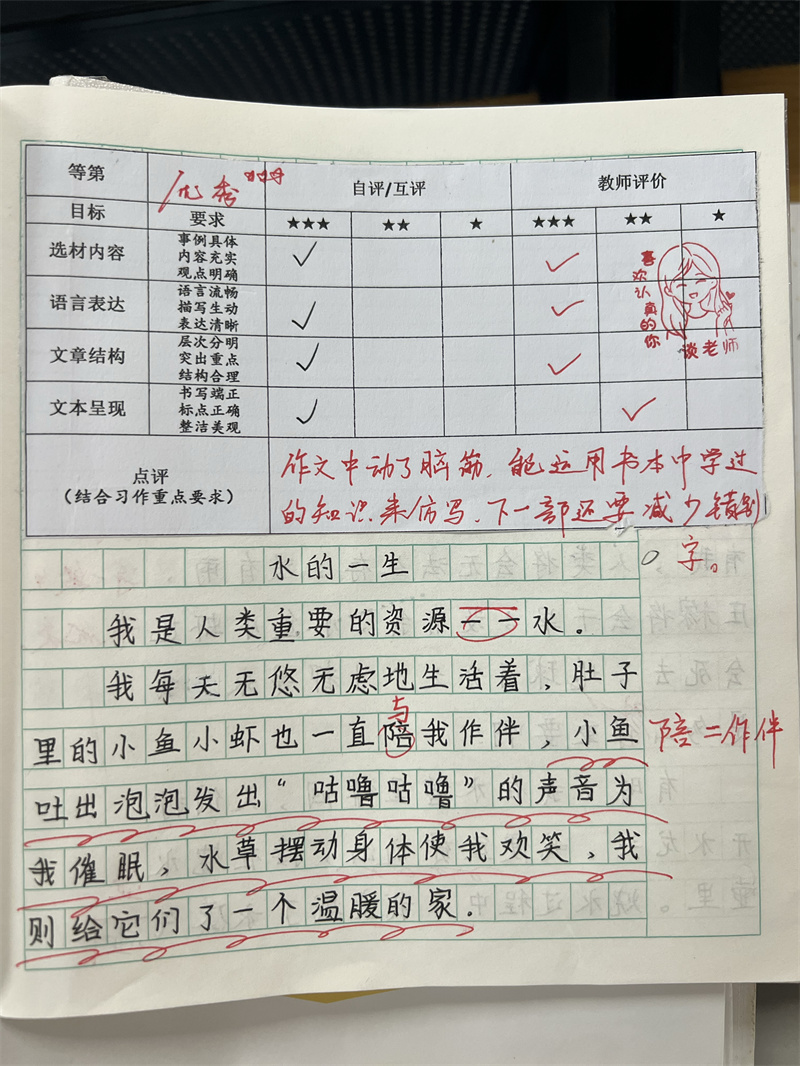 等第 优秀 自评/互评 教师评价
目标 要求 ★★★ ★★ ★ ★★★ ★★ ★
选材内容 事例具体
内容充实
观点明确
语言表达 语言流畅
描写生动
表达清晰
文章结构 层次分明
突出重点
结构合理
文本呈现 书写端正
标点正确
整洁美观
喜欢认真的你
谈老师
点评
(结合习作重点要求)
作文中动了脑筋,能运用书本中学过
的知识来仿写,下一部还要减少错别
字。
水的一生
我是人类重要的资源——水.
我每天无悠无虑地生活着,肚子
与
里的小鱼小虾也一直陪我作伴,小鱼
陪=作伴
吐出泡泡发出“咕噜咕噜”的声音为
我催眠,水草摆动身体使我欢笑,我
则给它们了一个温暖的家.